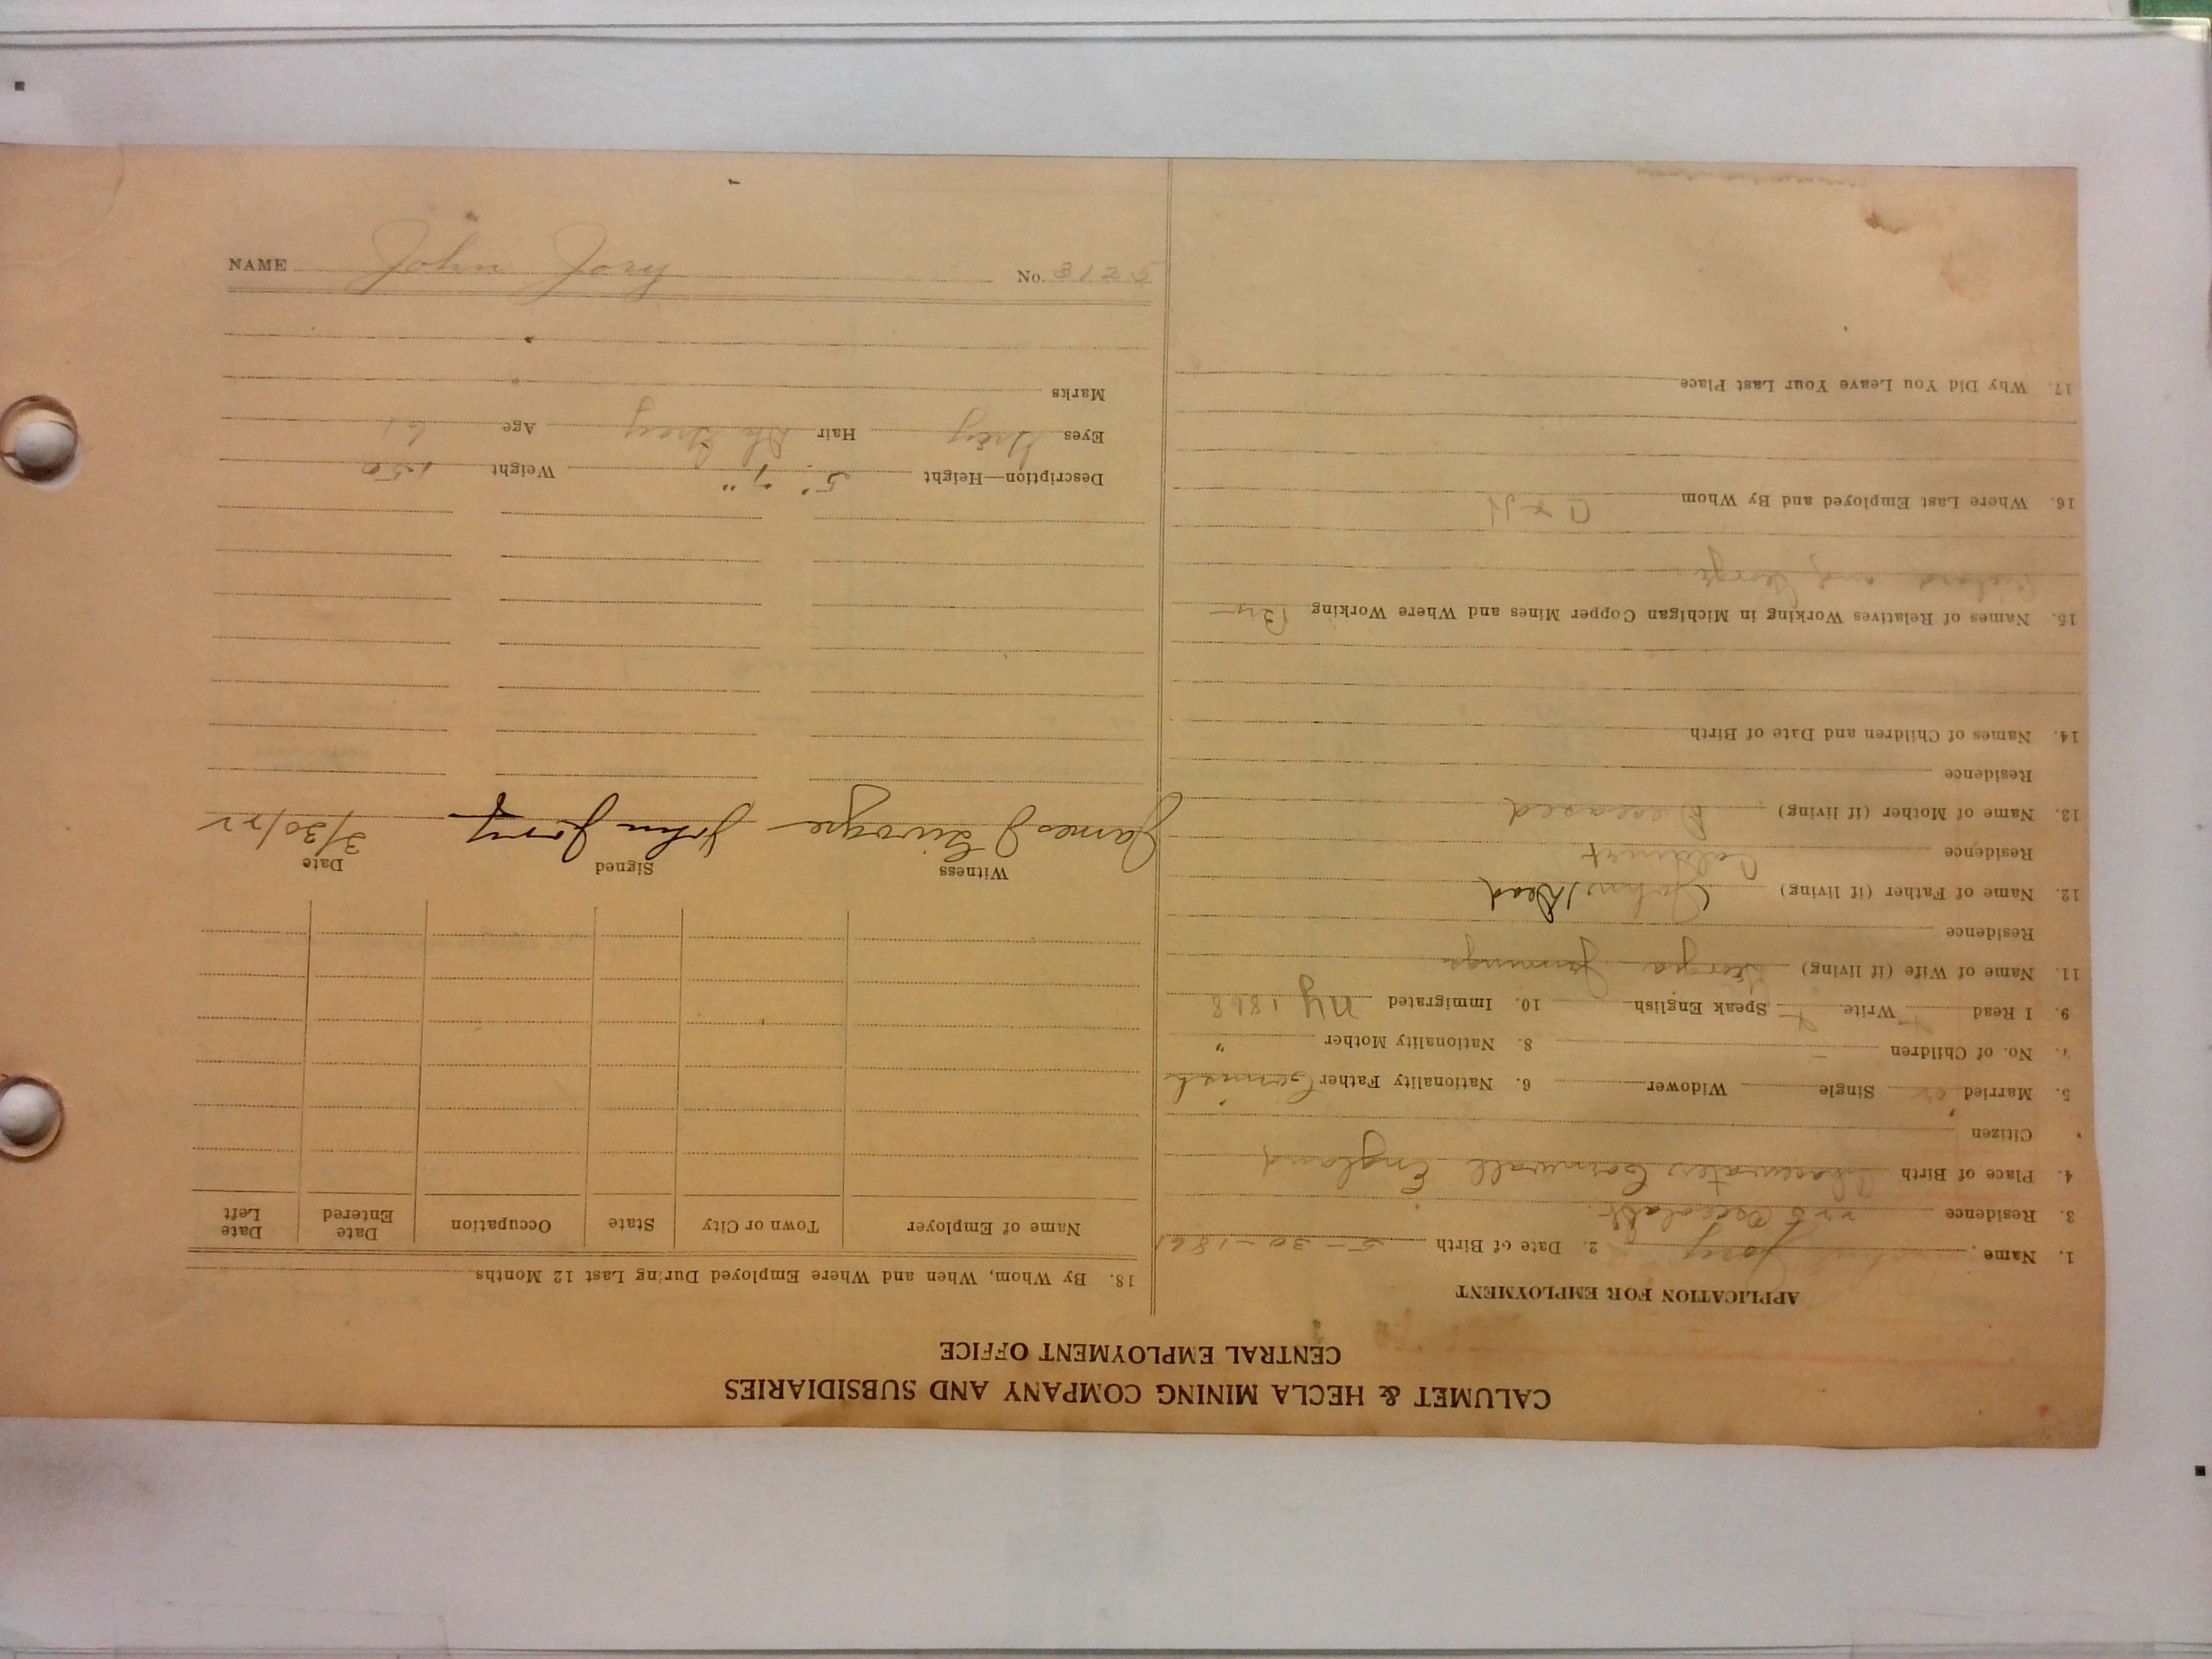 CALUMET & HECLA MINING COMPANY AND SUBSIDIARIES
CENTRAL EMPLOYMENT OFFICE
APPLICATION FOR EMPLOYMENT
1. Name Jory 2. Date of Birth 5-30-1861
3. Residence Osceola
4. Place of Birth Chacewater Cornwall England
Citizen
5. Married Single Widower 6. Nationality Father Cornish
7. No. of Children - 8. Nationality Mother "
9. I Read Write Speak English 10. Immigrated My 1868
11. Name of Wife (if living) Georgia Jennings
Residence
12. Name of Father (if living) John Dead
Residence Calumet
13. Name of Mother (if living) Deceased
Residence
14. Names of Children and Date of Birth
15. Names of Relatives Working in Michigan Copper Mines and Where Working Bro
Richard and George
16. Where Last Employed and By Whom C & H
17. Why Did You Leave Your Last Place
18. By Whom, When and Where Employed During Last 12 Months
Name of Employer Town or City State Occupation Date Entered Date Left
Witness Signed Date
James J John Jory 3/30/22
Description—Height 5' 7" Weight 150
Eyes Grey Hair Dk Grey Age 61
Marks
NAME John Jory No. 3125